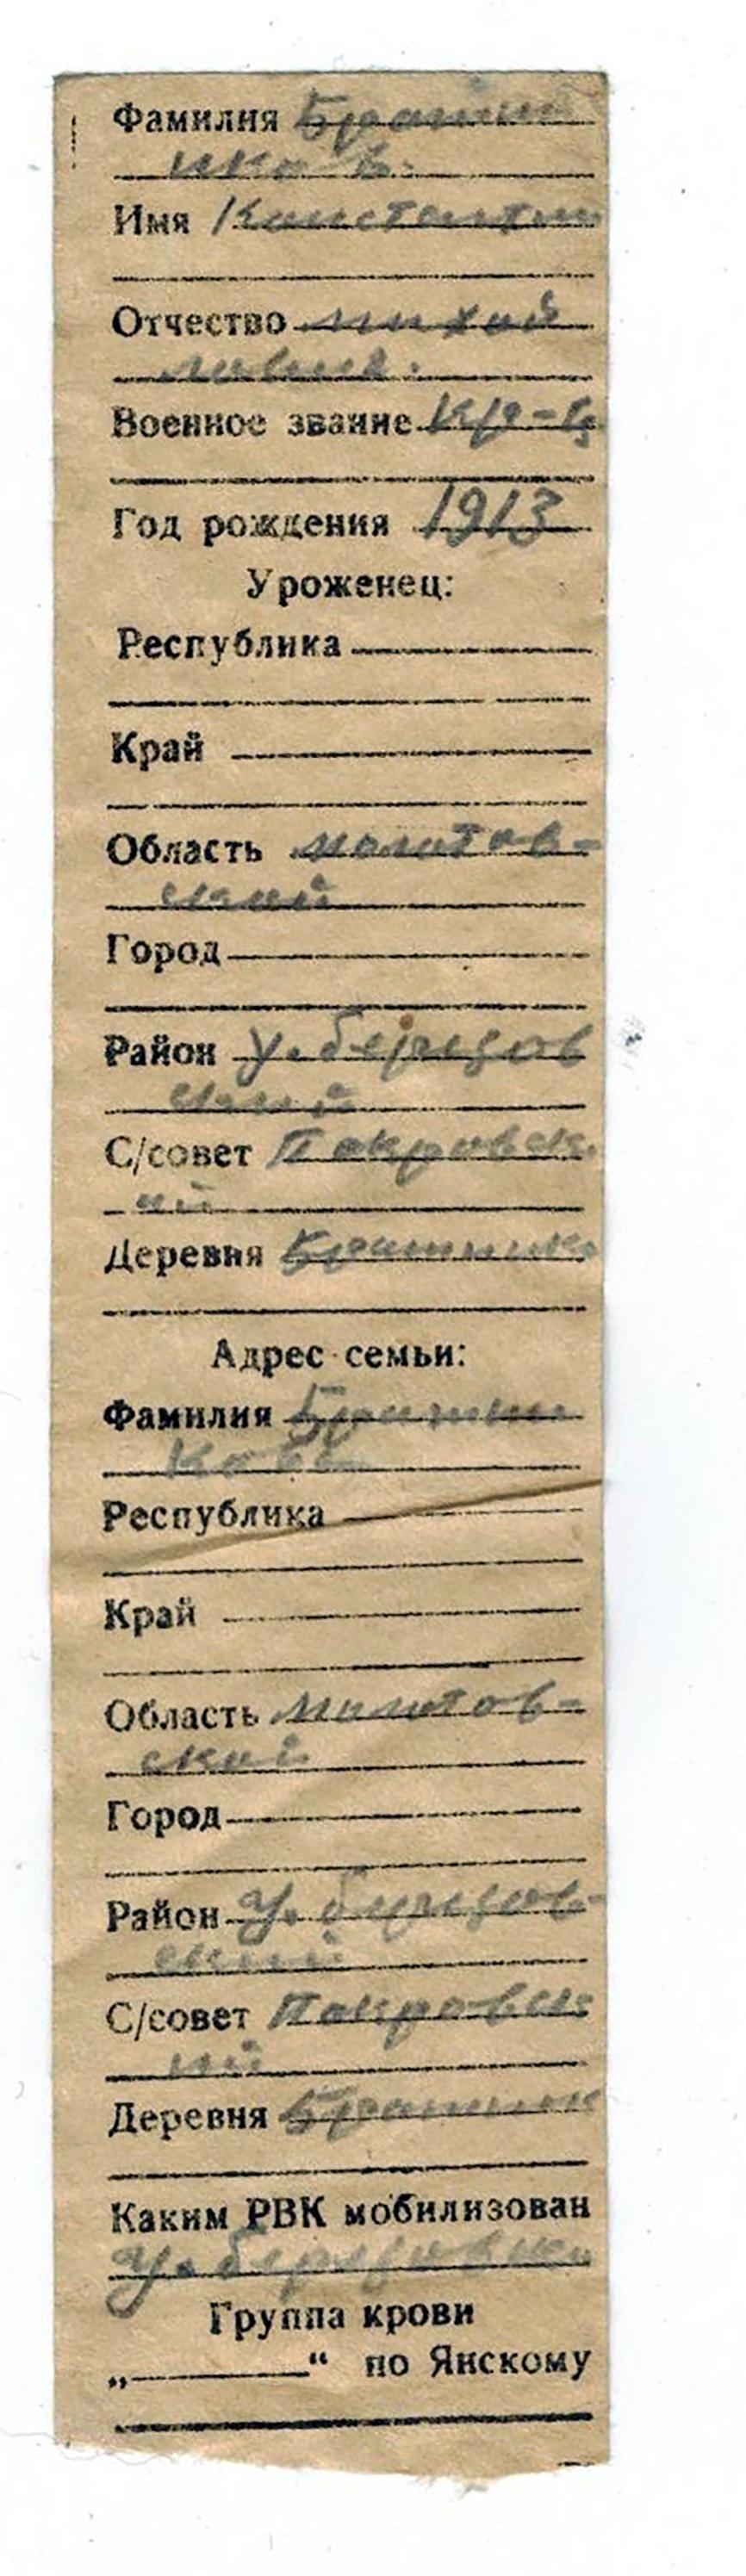 Фамилия Братчи
ков.
Имя Константин
Отчество михай
лович.
Военное звание Кр-ц
Год рождения 1913
Уроженец:
Республика
Край
Область молотов-
ский
Город
Район У. березов
ский
С/совет Покровск.
ий
Деревня
Адрес семьи:
Фамилия
Республика
Край
Область Молотов-
ской
Город
Район У. березов-
ский
С/совет Покровск
ий
Деревня
Каким РВК мобилизован
У. березовским
Группа крови
„ “ по Янскому